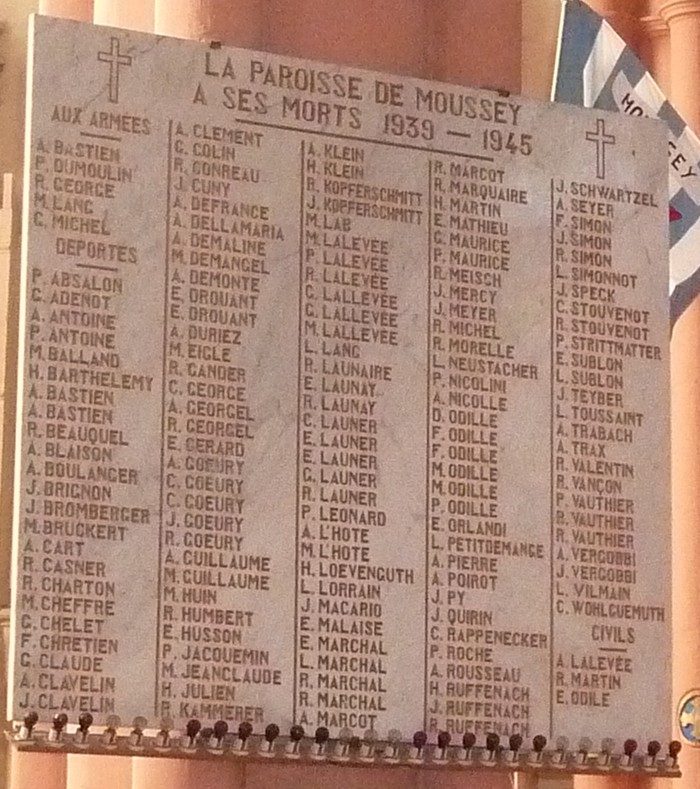 LA PAROISSE DE MOUSSEY
A SES MORTS 1939 — 1945
AUX ARMÉES
A. BASTIEN
P. DUMOULIN
R. GEORGE
M. LANG
G. MICHEL
DEPORTES
P. ABSALON
G. ADENOT
A. ANTOINE
P. ANTOINE
M. BALLAND
H. BARTHELEMY
A. BASTIEN
A. BASTIEN
R. BEAUQUEL
A. BLAISON
A. BOULANGER
J. BRIGNON
J. BROMBERGER
M. BRUCKERT
A. CART
R. CASNER
R. CHARTON
M. CHEFFRE
G. CHELET
F. CHRETIEN
G. CLAUDE
A. CLAVELIN
J. CLAVELIN
A. CLEMENT
G. COLIN
R. CONREAU
J. CUNY
A. DEFRANCE
A. DELLAMARIA
A. DEMALINE
M. DEMANGEL
A. DEMONTE
E. DROUANT
E. DROUANT
A. DURIEZ
M. EIGLE
R. GANDER
C. GEORGE
A. GEORGEL
R. GEORGEL
E. GERARD
A. GOEURY
C. GOEURY
C. GOEURY
J. GOEURY
R. GOEURY
A. GUILLAUME
M. GUILLAUME
M. HUIN
R. HUMBERT
E. HUSSON
P. JACQUEMIN
M. JEANCLAUDE
H. JULIEN
R. KAMMERER
A. KLEIN
H. KLEIN
R. KOPFERSCHMITT
J. KOPFERSCHMITT
M. LAB
M. LALEVÉE
P. LALEVÉE
R. LALEVÉE
G. LALLEVÉE
G. LALLEVÉE
M. LALLEVÉE
L. LANG
R. LAUNAIRE
E. LAUNAY
R. LAUNAY
C. LAUNER
E. LAUNER
E. LAUNER
G. LAUNER
R. LAUNER
P. LEONARD
A. L'HOTE
M. L'HOTE
H. LOEVENGUTH
L. LORRAIN
J. MACARIO
E. MALAISE
E. MARCHAL
L. MARCHAL
R. MARCHAL
R. MARCHAL
A. MARCOT
R. MARCOT
R. MARQUAIRE
H. MARTIN
E. MATHIEU
G. MAURICE
P. MAURICE
R. MEISCH
J. MERCY
J. MEYER
R. MICHEL
R. MORELLE
L. NEUSTACHER
P. NICOLINI
A. NICOLLE
D. ODILLE
F. ODILLE
F. ODILLE
M. ODILLE
M. ODILLE
P. ODILLE
E. ORLANDI
L. PETITDEMANGE
A. PIERRE
A. POIROT
J. PY
J. QUIRIN
C. RAPPENECKER
P. ROCHE
A. ROUSSEAU
H. RUFFENACH
J. RUFFENACH
R. RUFFENACH
J. SCHWARTZEL
A. SEYER
F. SIMON
J. SIMON
R. SIMON
L. SIMONNOT
J. SPECK
C. STOUVENOT
R. STOUVENOT
P. STRITTMATTER
E. SUBLON
L. SUBLON
J. TEYBER
L. TOUSSAINT
A. TRABACH
A. TRAX
R. VALENTIN
R. VANÇON
P. VAUTHIER
R. VAUTHIER
R. VAUTHIER
A. VERGOBBI
J. VERGOBBI
L. VILMAIN
C. WOHLGUEMUTH
CIVILS
A. LALEVÉE
R. MARTIN
E. ODILE